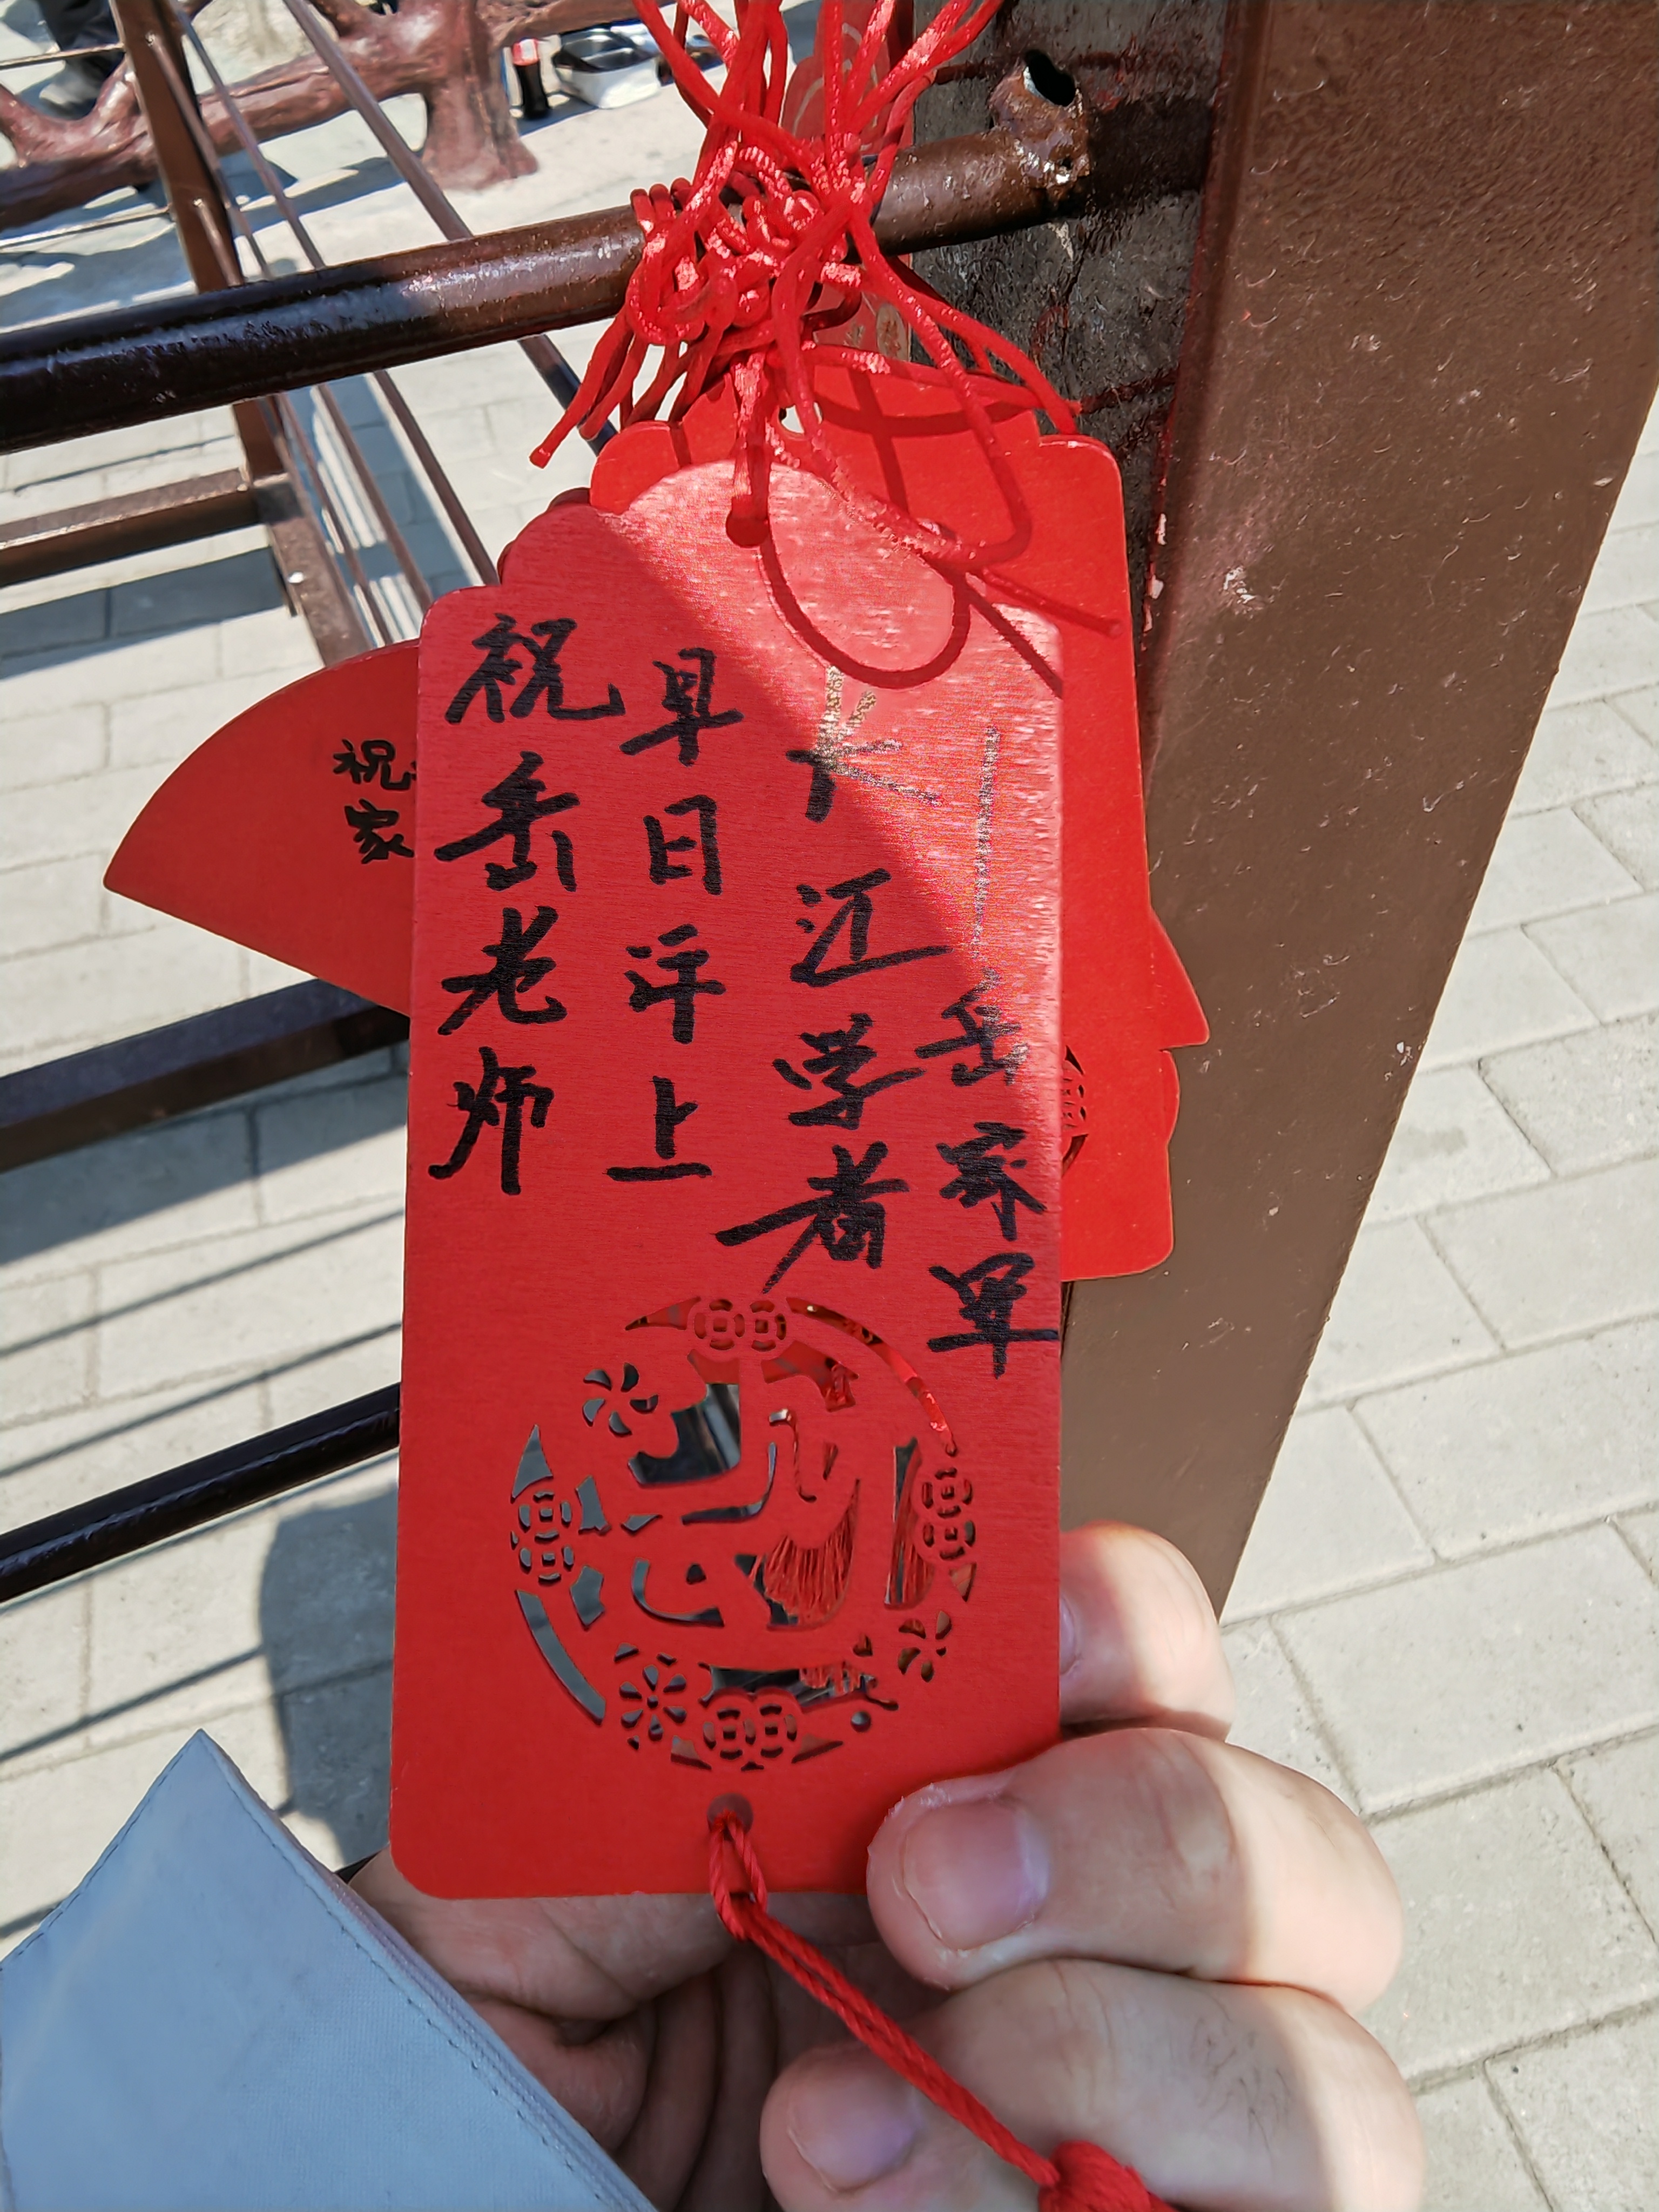 祝岳老师
早日评上
长江学者
—岳家军
祝
家